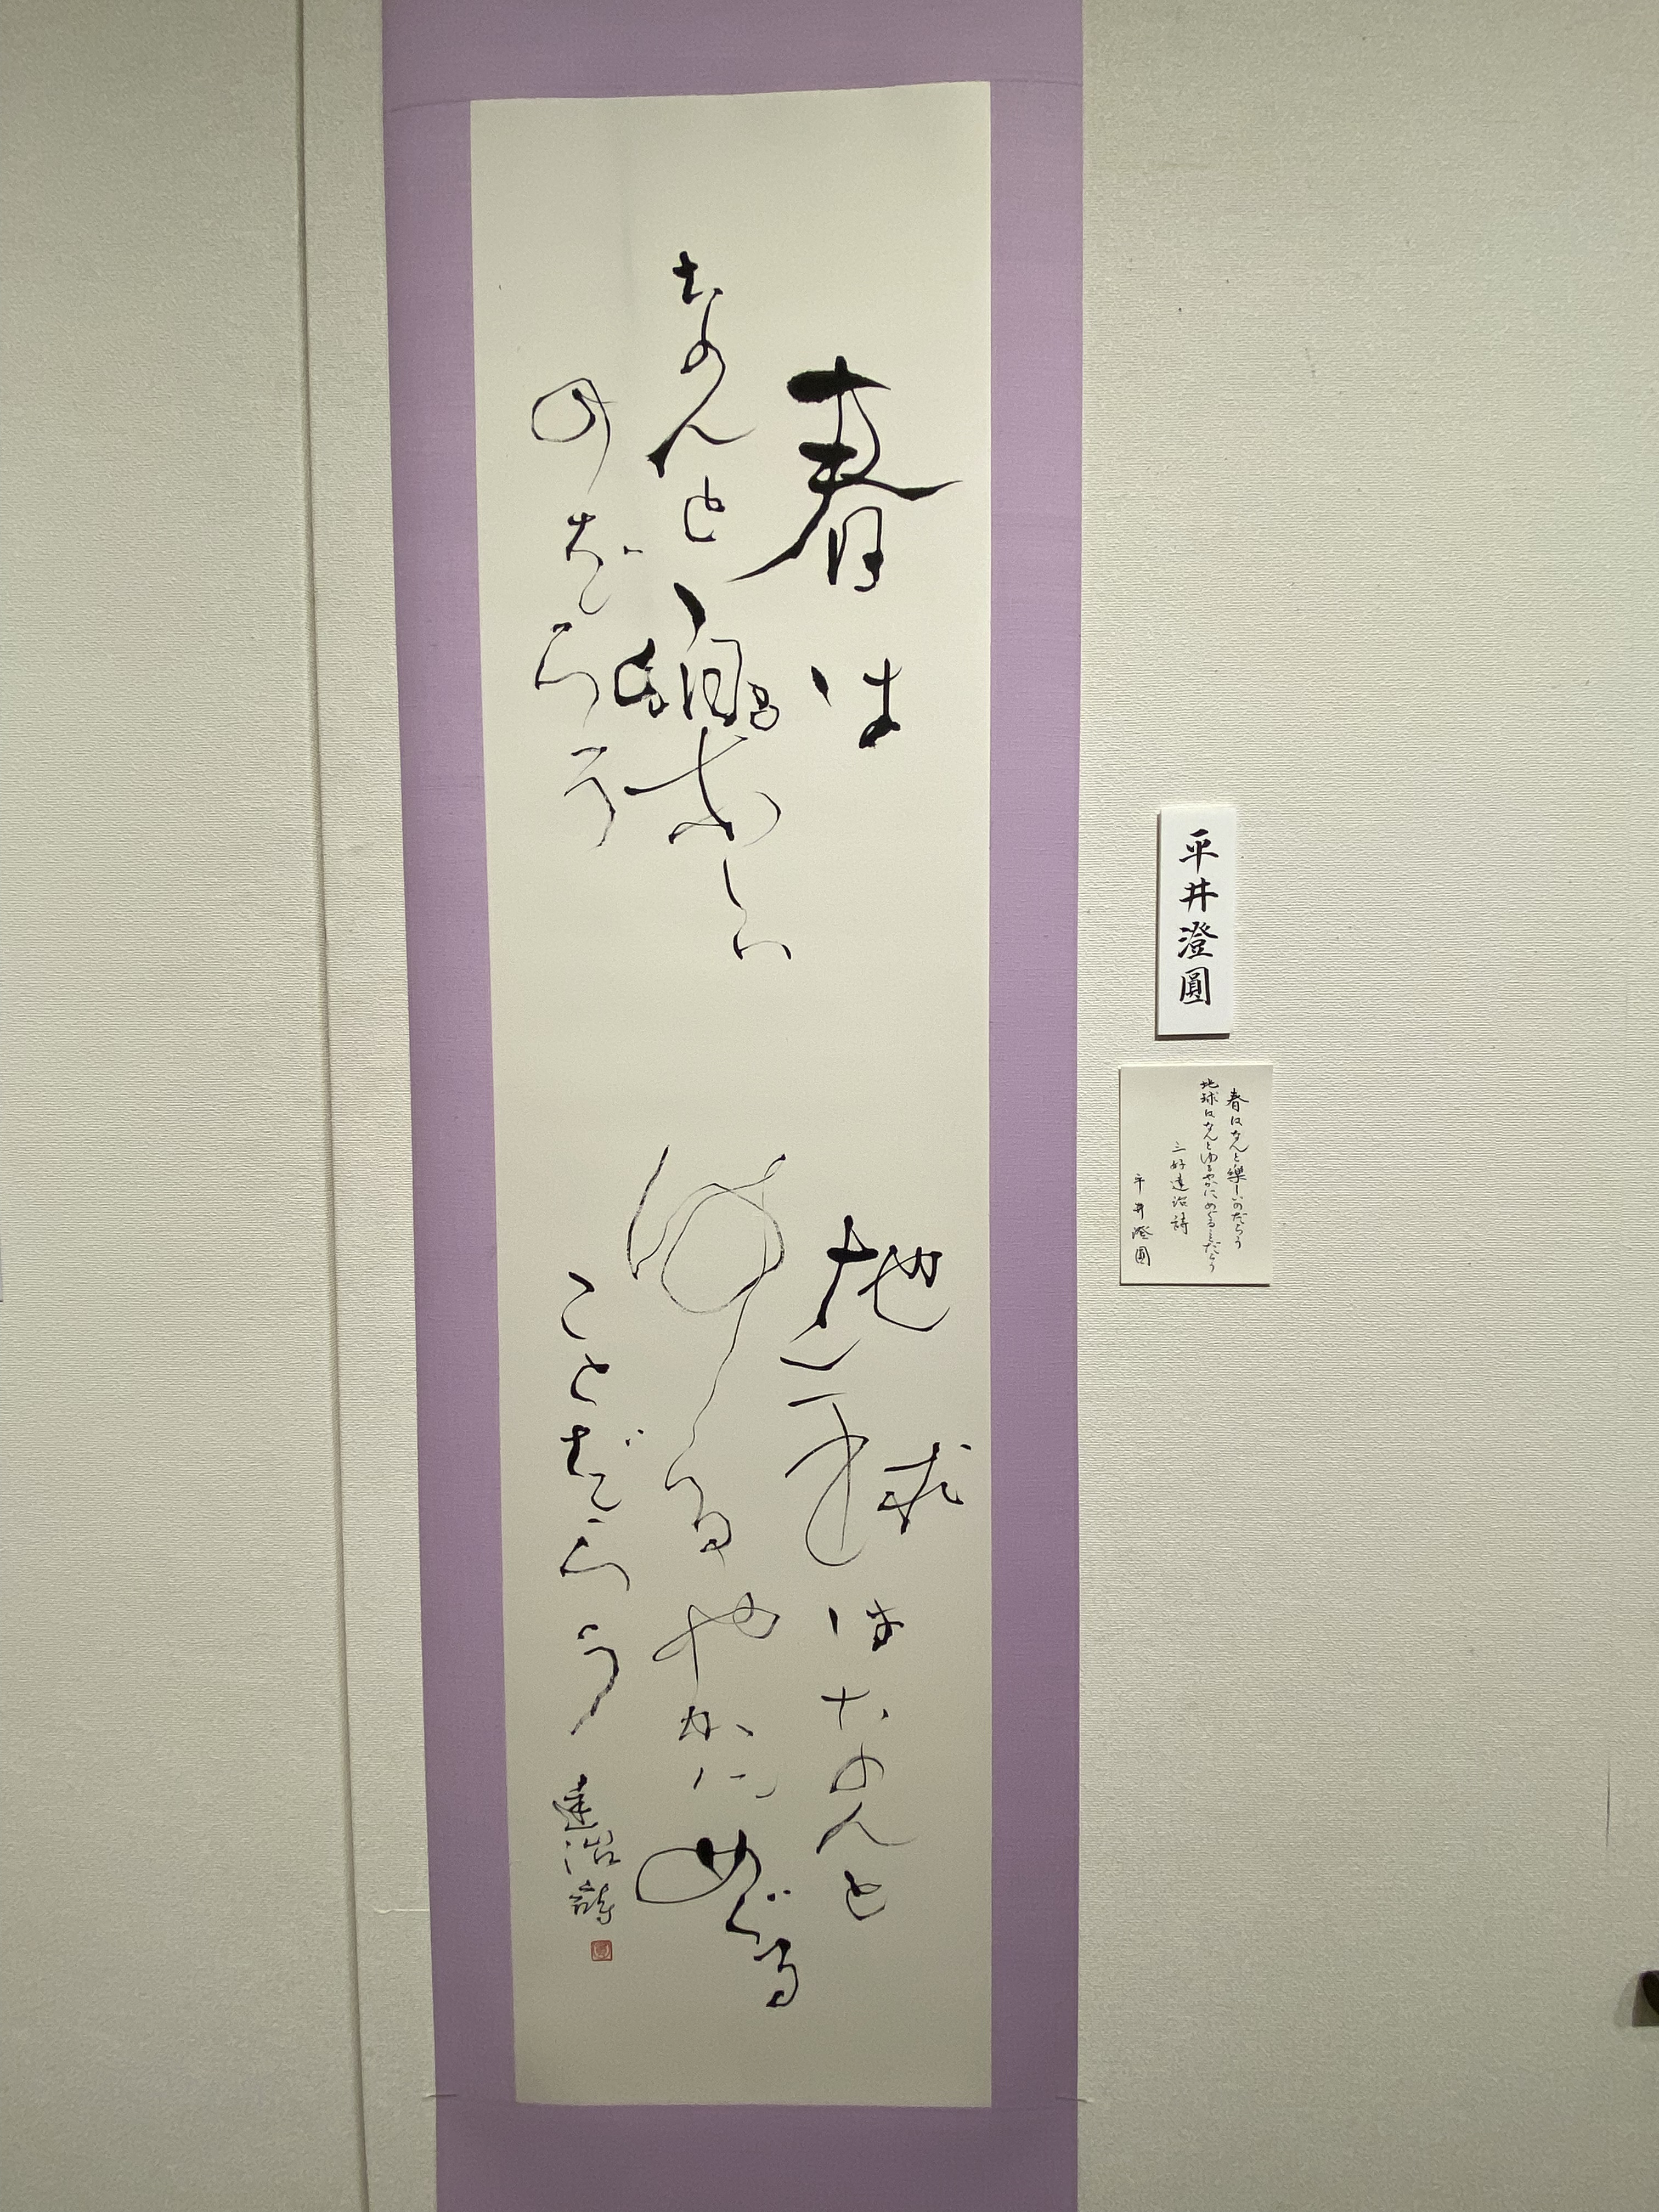 春は
なんと樂しい
のだらう
地球はなんと
ゆるやかにめぐる
ことだらう
達治詩
平井澄圓
春はなんと樂しいのだらう
地球はなんとゆるやかにめぐることだらう
三好達治詩
平井澄圓